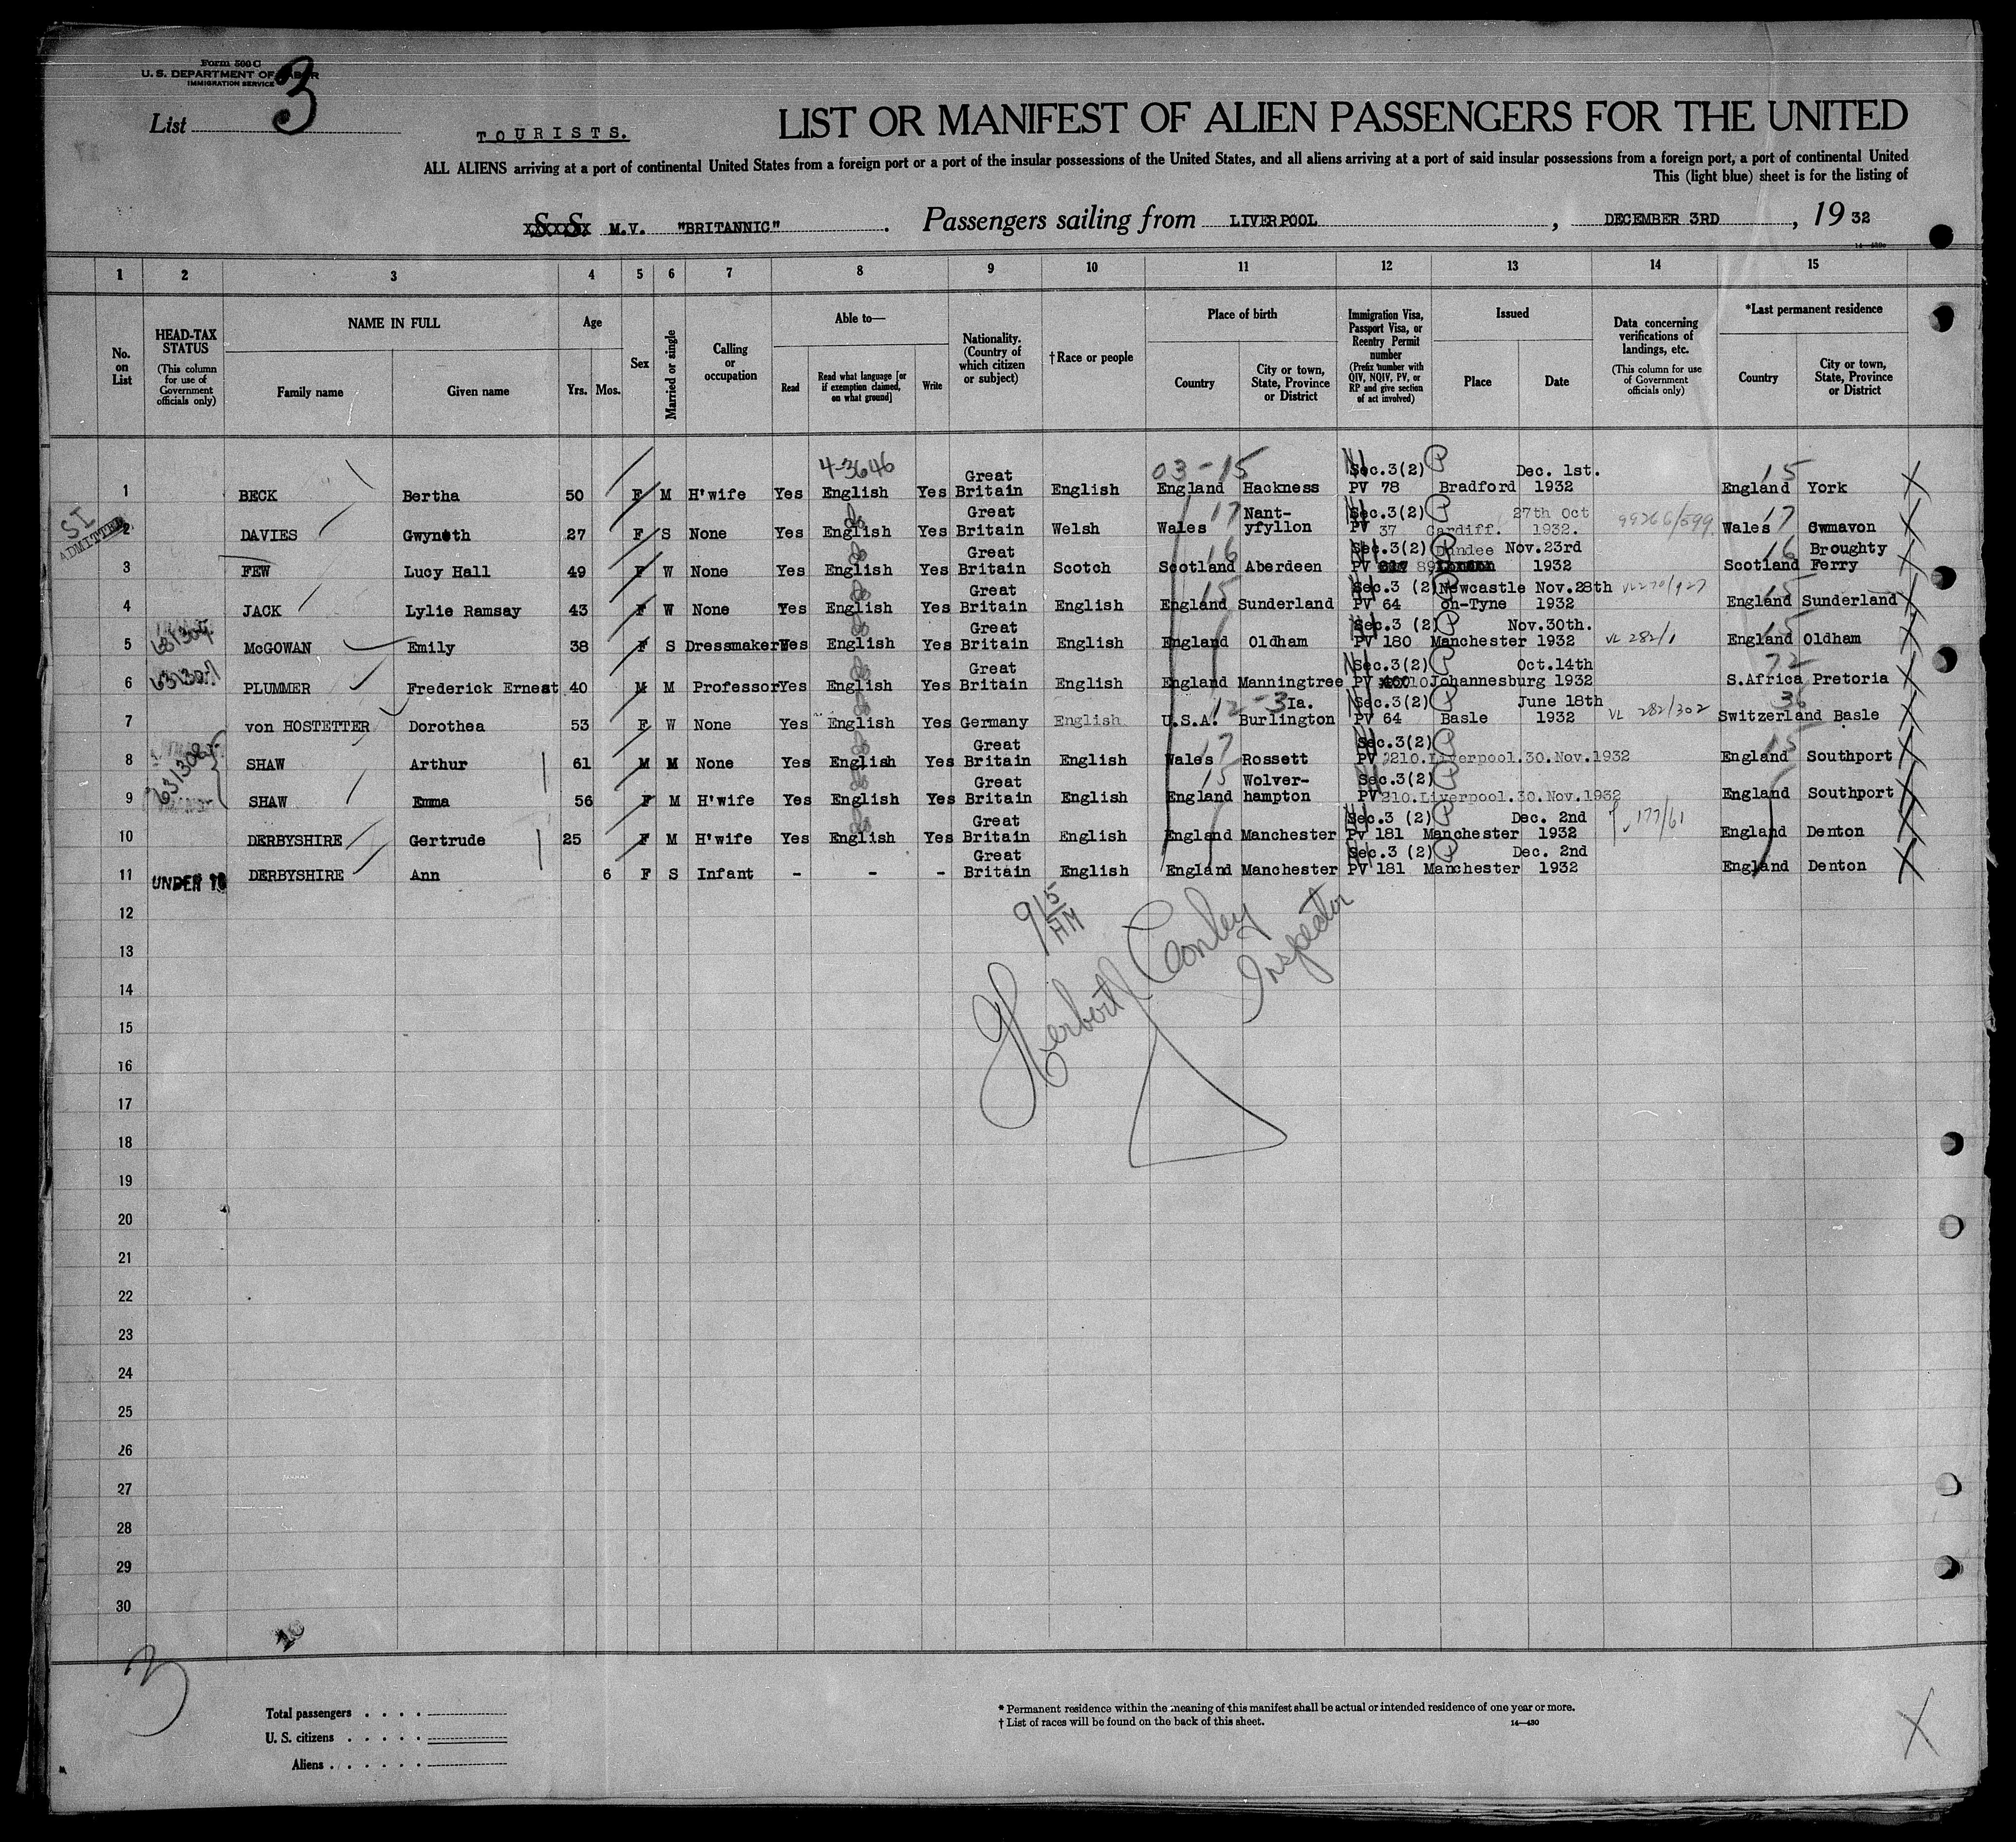 Form 500 C
U. S. DEPARTMENT OF LABOR
IMMIGRATION SERVICE
List 3
TOURISTS.
LIST OR MANIFEST OF ALIEN PASSENGERS FOR THE UNITED
ALL ALIENS arriving at a port of continental United States from a foreign port or a port of the insular possessions of the United States, and all aliens arriving at a port of said insular possessions from a foreign port, a port of continental United
This (light blue) sheet is for the listing of
S. S. M.V. "BRITANNIC". Passengers sailing from LIVERPOOL, DECEMBER 3RD, 19 32
1 2 3 4 5 6 7 8 9 10 11 12 13 14 15
No. on List
HEAD-TAX STATUS (This column for use of Government officials only)
NAME IN FULL
Family name Given name
Age
Yrs. Mos.
Sex
Married or single
Calling or occupation
Able to—
Read Read what language [or if exemption claimed, on what ground] Write
Nationality. (Country of which citizen or subject)
†Race or people
Place of birth
Country City or town, State, Province or District
Immigration Visa, Passport Visa, or Reentry Permit number (Prefix number with QIV, NQIV, PV, or RP and give section of act involved)
Issued
Place Date
Data concerning verifications of landings, etc. (This column for use of Government officials only)
*Last permanent residence
Country City or town, State, Province or District
4-3646 03-15 15
1 BECK Bertha 50 F M H'wife Yes English Yes Great Britain English England Hackness Sec.3(2) PV 78 Bradford Dec. 1st. 1932 England York X
SI ADMITTED
2 DAVIES Gwyneth 27 F S None Yes English Yes Great Britain Welsh Wales 17 Nant-yfyllon Sec.3(2) PV 37 Cardiff. 27th Oct 1932. 99266/599 Wales 17 Cwmavon X
3 FEW Lucy Hall 49 F W None Yes English Yes Great Britain Scotch Scotland 16 Aberdeen Sec.3(2) PV 89 Dundee Nov.23rd 1932 Scotland 16 Broughty Ferry X
4 JACK Lylie Ramsay 43 F W None Yes English Yes Great Britain English England 15 Sunderland Sec.3 (2) PV 64 Newcastle on-Tyne Nov.28th 1932 England 15 Sunderland X
5 McGOWAN Emily 38 F S Dressmaker Yes English Yes Great Britain English England Oldham Sec.3 (2) PV 180 Manchester Nov.30th. 1932 VL 282/1 England 15 Oldham X
6 PLUMMER Frederick Ernest 40 M M Professor Yes English Yes Great Britain English England Manningtree Sec.3(2) PV 10 Johannesburg Oct.14th 1932 72 S.Africa Pretoria X
7 von HOSTETTER Dorothea 53 F W None Yes English Yes Germany English U.S.A. 12-3 Burlington Ia. Sec.3(2) PV 64 Basle June 18th 1932 VL 282/302 36 Switzerland Basle X
8 SHAW Arthur 61 M M None Yes English Yes Great Britain English Wales 17 Rossett Sec.3(2) PV 210. Liverpool. 30. Nov. 1932 England 15 Southport X
9 SHAW Emma 56 F M H'wife Yes English Yes Great Britain English England 15 Wolver-hampton Sec.3(2) PV 210. Liverpool. 30. Nov. 1932 England Southport X
10 DERBYSHIRE Gertrude 25 F M H'wife Yes English Yes Great Britain English England Manchester Sec.3 (2) PV 181 Manchester Dec. 2nd 1932 177/61 England Denton X
11 UNDER 16 DERBYSHIRE Ann 6 F S Infant - - - Great Britain English England Manchester Sec.3 (2) PV 181 Manchester Dec. 2nd 1932 England Denton X
12
13
14
15
16
17
18
19
20
21
22
23
24
25
26
27
28
29
30
Herbert J Conley
Inspector
3
Total passengers
U. S. citizens
Aliens
* Permanent residence within the meaning of this manifest shall be actual or intended residence of one year or more.
† List of races will be found on the back of this sheet.
14—430
X